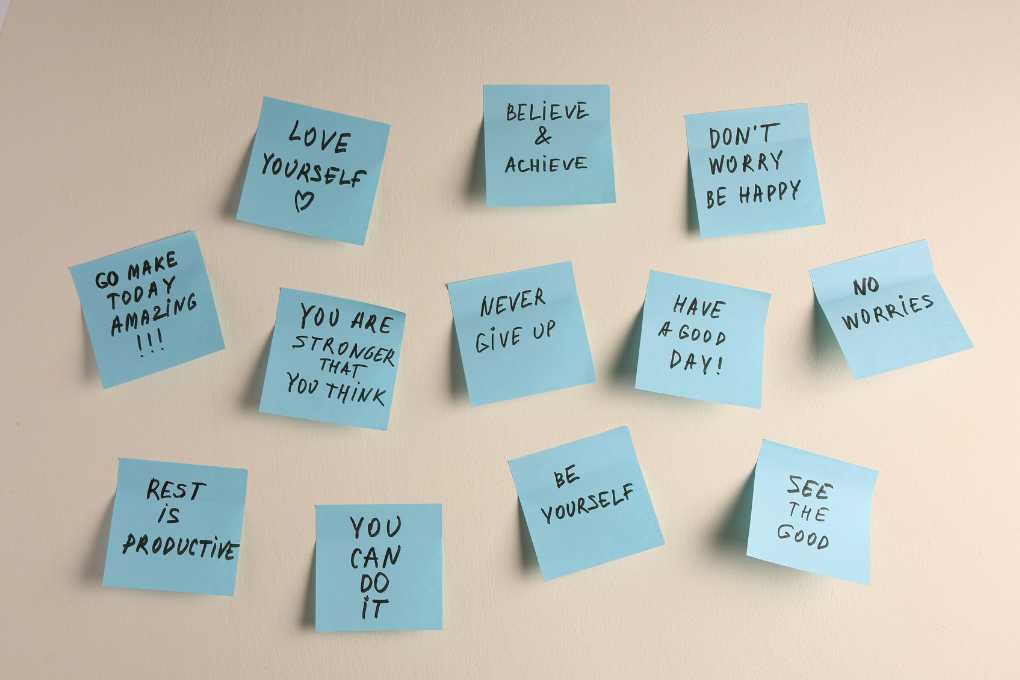 LOVE
YOURSELF
♡
BELiEVE
&
ACHiEVE
DON'T
WORRY
BE HAPPY
GO MAKE
TODAY
AMAZiNG
!!!
YOU ARE
STRONGER
THAT
YOU THiNK
NEVER
GiVE UP
HAVE
A GOOD
DAY!
NO
WORRiES
REST
iS
PRODUCTiVE
YOU
CAN
DO
iT
BE
YOURSELF
SEE
THE
GOOD